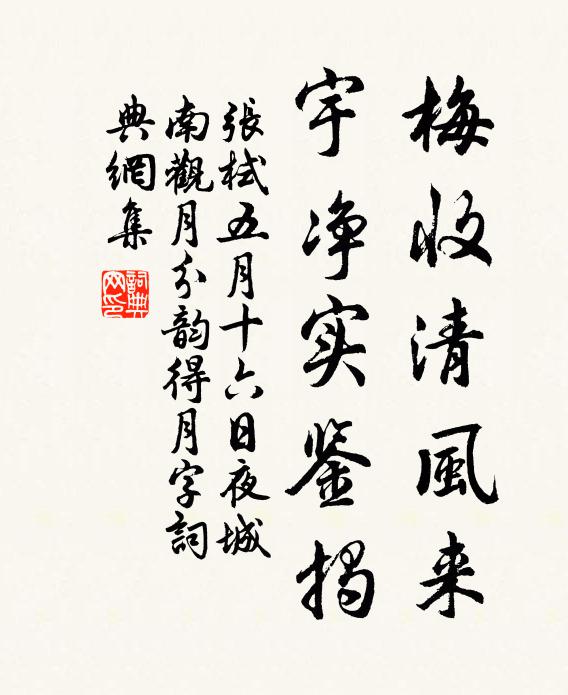 梅收清風来
宇净实鉴揭
張栻五月十六日夜城
南觀月分韵得月字詞
典網集
詞典网印